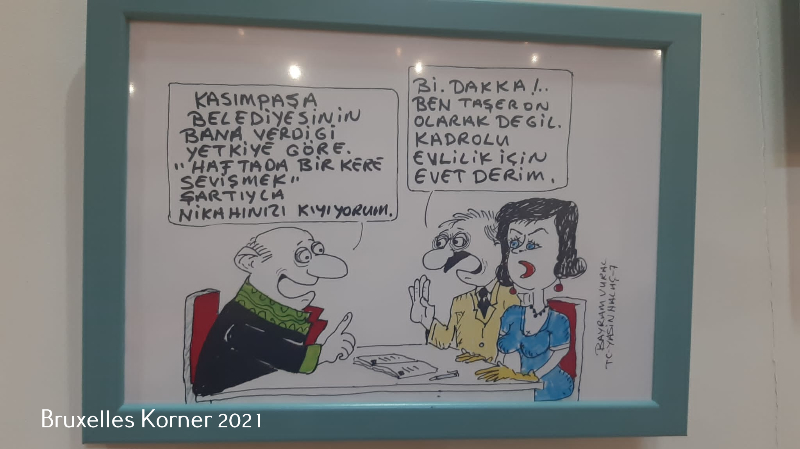 KASIMPAŞA
BELEDİYESİNİN
BANA VERDİGİ
YETKİYE GÖRE.
"HAFTADA BİR KERE
SEVİŞMEK"
ŞARTIYLA
NİKAHINIZI KIYIYORUM.
Bİ. DAKKA!..
BEN TAŞERON
OLARAK DEGİL.
KADROLU
EVLİLİK İÇİN
EVET DERİM.
BAYRAM VURAL
Bruxelles Korner 2021